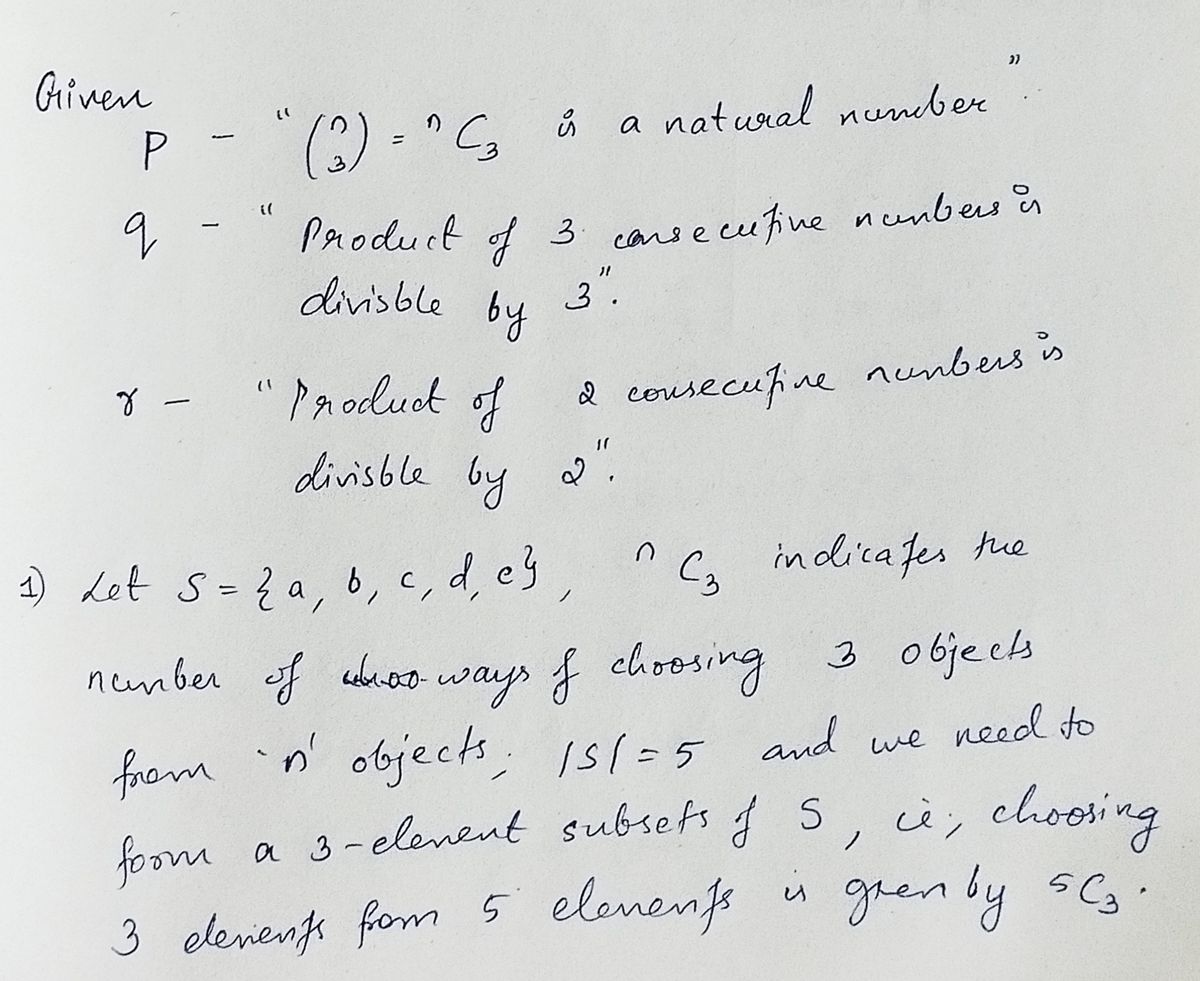 Given
P - "(n 3) = ⁿC₃ is a natural number".
q - "Product of 3 consecutive numbers is
divisble by 3".
r - "Product of 2 consecutive numbers is
divisble by 2".
1) Let S = {a, b, c, d, e}, ⁿC₃ indicates the
number of ways of choosing 3 objects
from 'n' objects, |S| = 5 and we need to
form a 3-element subsets of S, ie, choosing
3 elements from 5 elements is given by ⁵C₃.